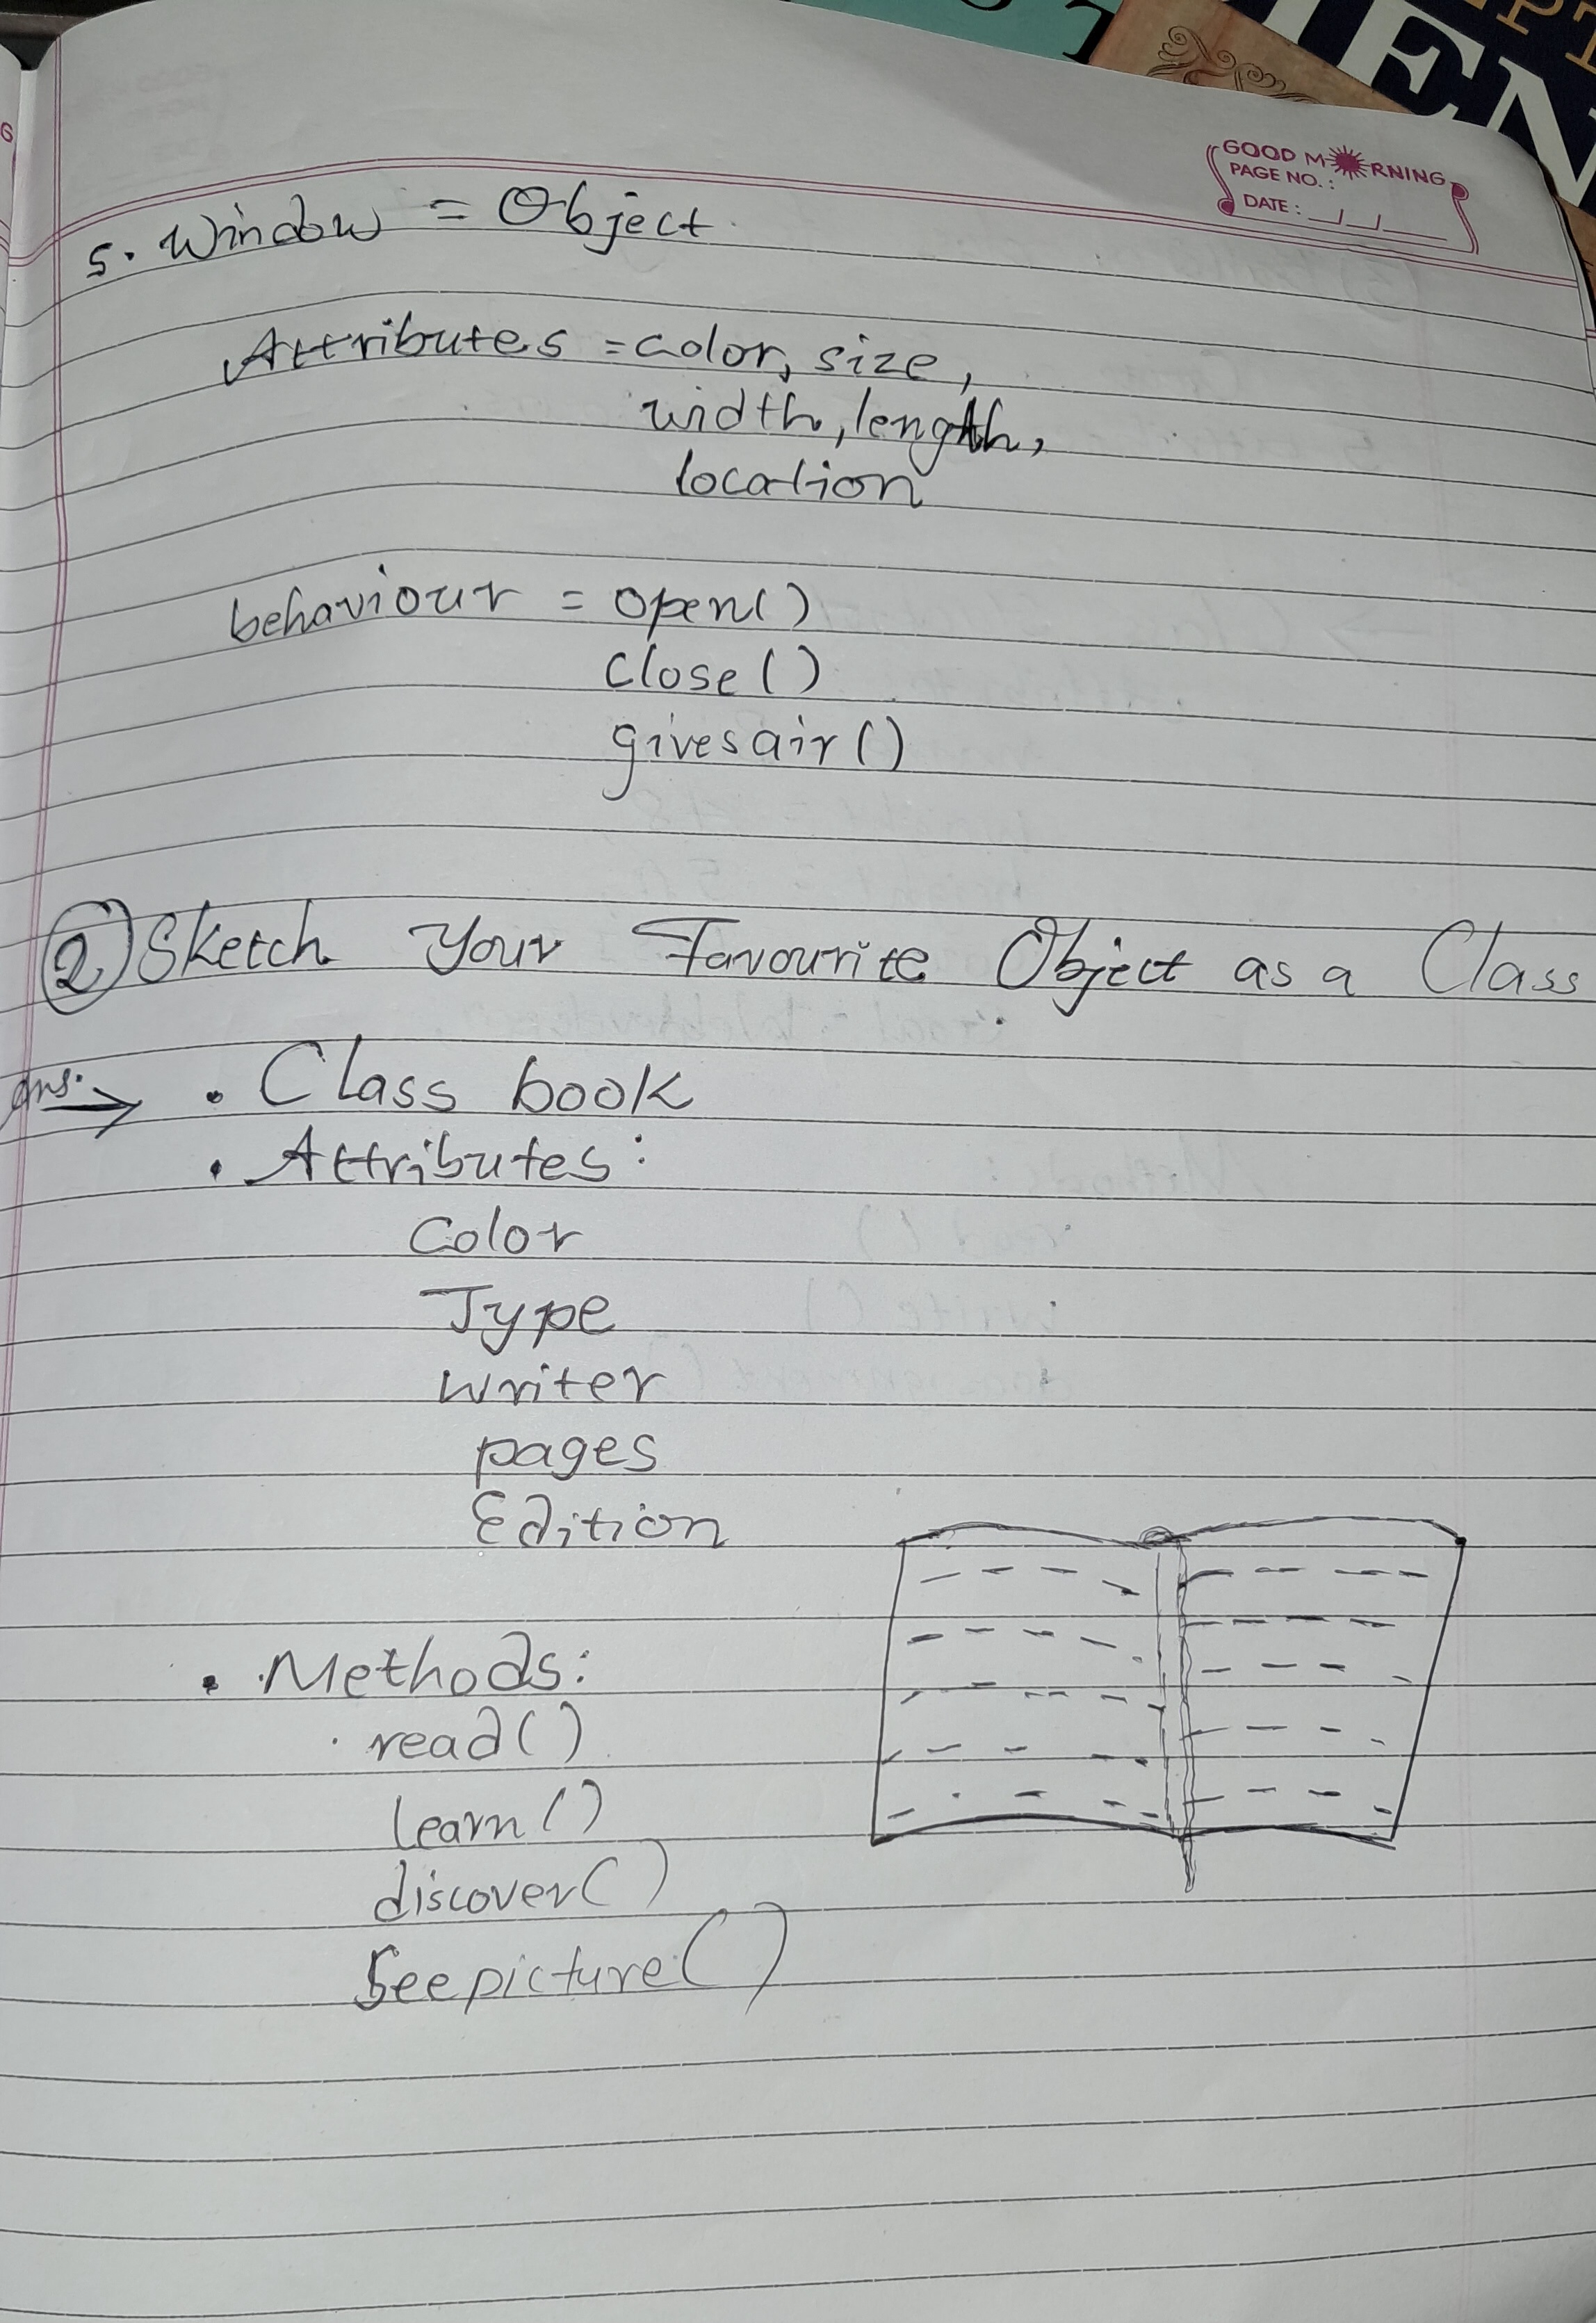 GOOD MORNING
PAGE NO. :
DATE :
5. Window = Object
Attributes = color, size,
width, length,
location
behaviour = open()
close()
givesair()
② Sketch Your Favourite Object as a Class
ans. → • Class book
• Attributes :
Color
Type
writer
pages
Edition
• Methods:
• read()
learn()
discover()
Seepicture()